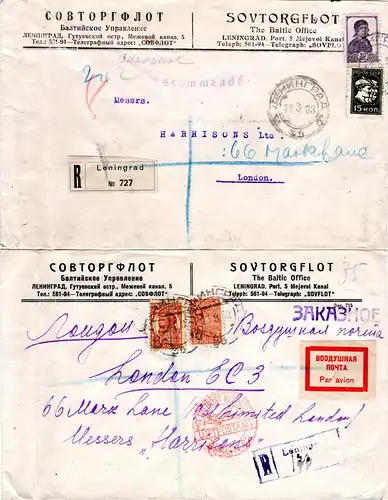 СОВТОРГФЛОТ
Балтийское Управление
ЛЕНИНГРАД, Гутуевский остр., Межевой канал, 5
Тел.: 561-94—Телеграфный адрес: „СОВФЛОТ"
SOVTORGFLOT
The Baltic Office
LENINGRAD, Port, 5 Mejevoi Kanal
Teleph: 561-94 - Telegraph „SOVFLOT"
15 КОП
Recommandé
ЛЕНИНГРАД
Messrs.
HARRISONS Ltd
66 Mark Lane
London.
R Leningrad
№ 727
СОВТОРГФЛОТ
Балтийское Управление
ЛЕНИНГРАД, Гутуевский остр., Межевой канал, 5
Тел.: 561-94—Телеграфный адрес: „СОВФЛОТ"
SOVTORGFLOT
The Baltic Office
LENINGRAD, Port, 5 Mejevoi Kanal
Teleph: 561-94 - Telegraph: „SOVFLOT"
ЗАКАЗНОЕ
Лондон
Воздушная почта
ВОЗДУШНАЯ
ПОЧТА
Par avion
London EC3
66 Mark Lane (Unlimited London)
Messers „Harrisons"
R